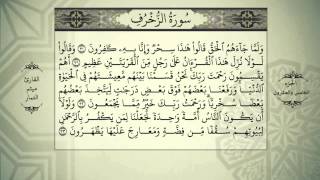 سُورَةُ الزُّخْرُفِ
وَلَمَّا جَاءَهُمُ الْحَقُّ قَالُوا هَٰذَا سِحْرٌ وَإِنَّا بِهِ كَٰفِرُونَ ٣٠ وَقَالُوا
لَوْلَا نُزِّلَ هَٰذَا الْقُرْءَانُ عَلَىٰ رَجُلٍ مِّنَ الْقَرْيَتَيْنِ عَظِيمٍ ٣١ أَهُمْ
يَقْسِمُونَ رَحْمَتَ رَبِّكَ نَحْنُ قَسَمْنَا بَيْنَهُم مَّعِيشَتَهُمْ فِي الْحَيَوٰةِ
الدُّنْيَا وَرَفَعْنَا بَعْضَهُمْ فَوْقَ بَعْضٍ دَرَجَٰتٍ لِّيَتَّخِذَ بَعْضُهُم
بَعْضًا سُخْرِيًّا وَرَحْمَتُ رَبِّكَ خَيْرٌ مِّمَّا يَجْمَعُونَ ٣٢ وَلَوْلَا
أَن يَكُونَ النَّاسُ أُمَّةً وَٰحِدَةً لَّجَعَلْنَا لِمَن يَكْفُرُ بِالرَّحْمَٰنِ
لِبُيُوتِهِمْ سُقُفًا مِّن فِضَّةٍ وَمَعَارِجَ عَلَيْهَا يَظْهَرُونَ ٣٣
الجزء
الخامس والعشرون
القارئ
ميثم
التمار